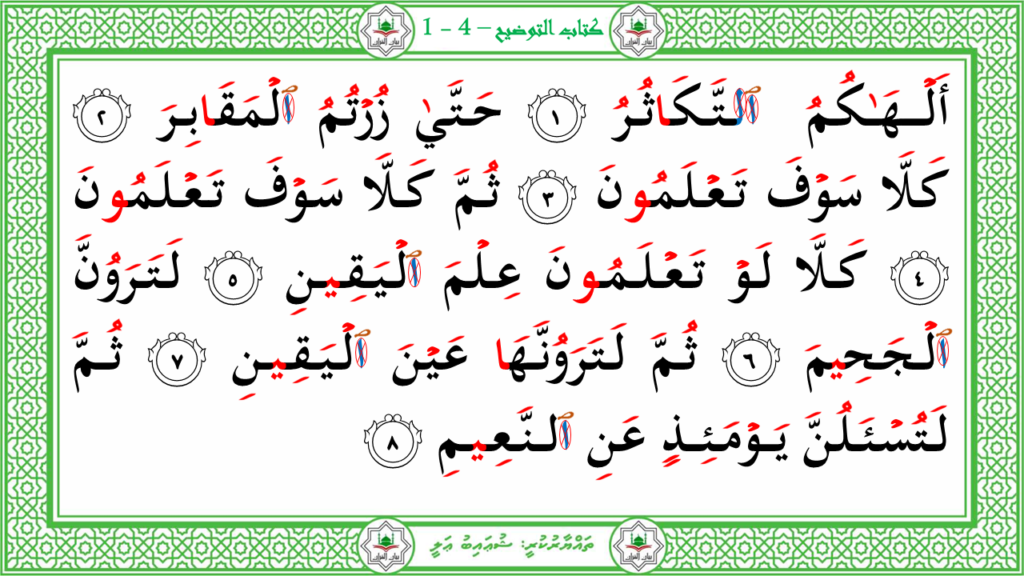 كتاب التوضيح – 4 - 1
أَلْهَىٰكُمُ ٱلتَّكَاثُرُ ١ حَتَّىٰ زُرْتُمُ ٱلْمَقَابِرَ ٢
كَلَّا سَوْفَ تَعْلَمُونَ ٣ ثُمَّ كَلَّا سَوْفَ تَعْلَمُونَ
٤ كَلَّا لَوْ تَعْلَمُونَ عِلْمَ ٱلْيَقِينِ ٥ لَتَرَوُنَّ
ٱلْجَحِيمَ ٦ ثُمَّ لَتَرَوُنَّهَا عَيْنَ ٱلْيَقِينِ ٧ ثُمَّ
لَتُسْـَٔلُنَّ يَوْمَئِذٍ عَنِ ٱلنَّعِيمِ ٨
ތައްޔާރުކުރީ: ޝުޢައިބު ޢަލީ